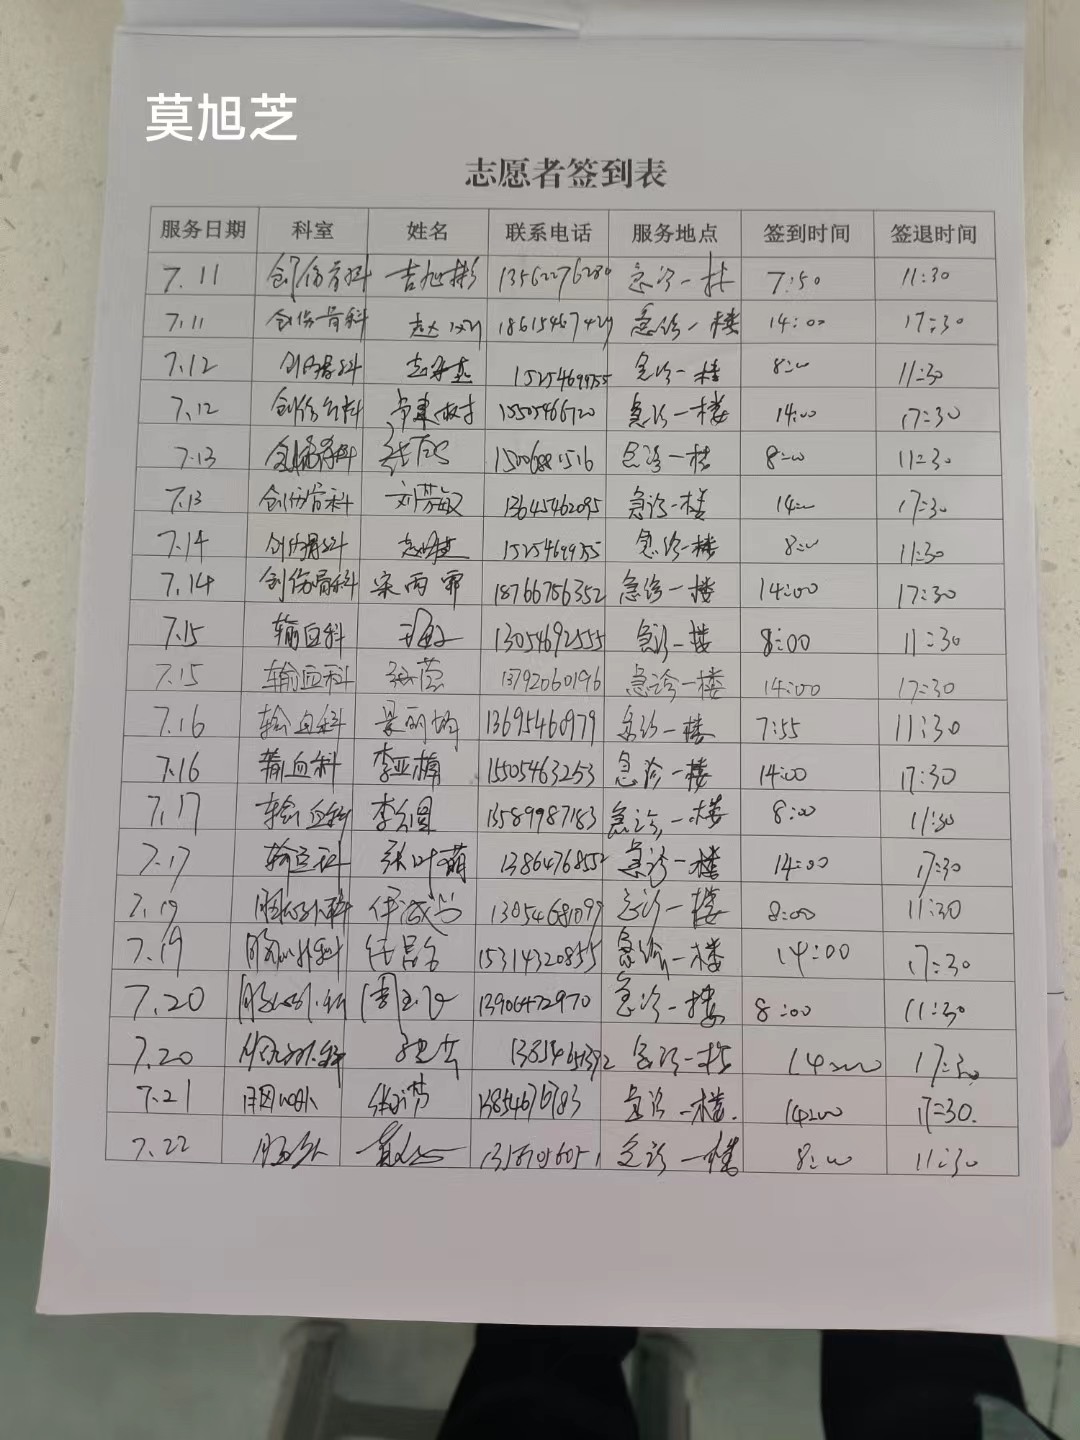 莫旭芝
志愿者签到表
服务日期 科室 姓名 联系电话 服务地点 签到时间 签退时间
7.11 创伤骨科 吉旭彬 13562276280 急诊一楼 7:50 11:30
7.11 创伤骨科 急诊一楼 14:00 17:30
7.12 创伤骨科 15254699755 急诊一楼 8:00 11:30
7.12 创伤骨科 15505466720 急诊一楼 14:00 17:30
7.13 创伤骨科 15006881516 急诊一楼 8:00 11:30
7.13 创伤骨科 刘芳敏 13645462095 急诊一楼 14:00 17:30
7.14 创伤骨科 急诊一楼 8:00 11:30
7.14 创伤骨科 宋雨霏 18766756352 急诊一楼 14:00 17:30
7.15 输血科 13054692555 急诊一楼 8:00 11:30
7.15 输血科 13792060196 急诊一楼 14:00 17:30
7.16 输血科 13695460979 急诊一楼 7:55 11:30
7.16 输血科 李亚楠 15505463253 急诊一楼 14:00 17:30
7.17 输血科 13589987183 急诊一楼 8:00 11:30
7.17 输血科 张叶萌 急诊一楼 14:00 17:30
7.19 胸心外科 13054681099 急诊一楼 8:00 11:30
7.19 胸心外科 15314320855 急诊一楼 14:00 17:30
7.20 胸心外科 13906472970 急诊一楼 8:00 11:30
7.20 胸心外科 急诊一楼 14:00 17:30
7.21 胸心外 13854676783 急诊一楼. 14:00 17:30.
7.22 急诊一楼 8:00 11:30